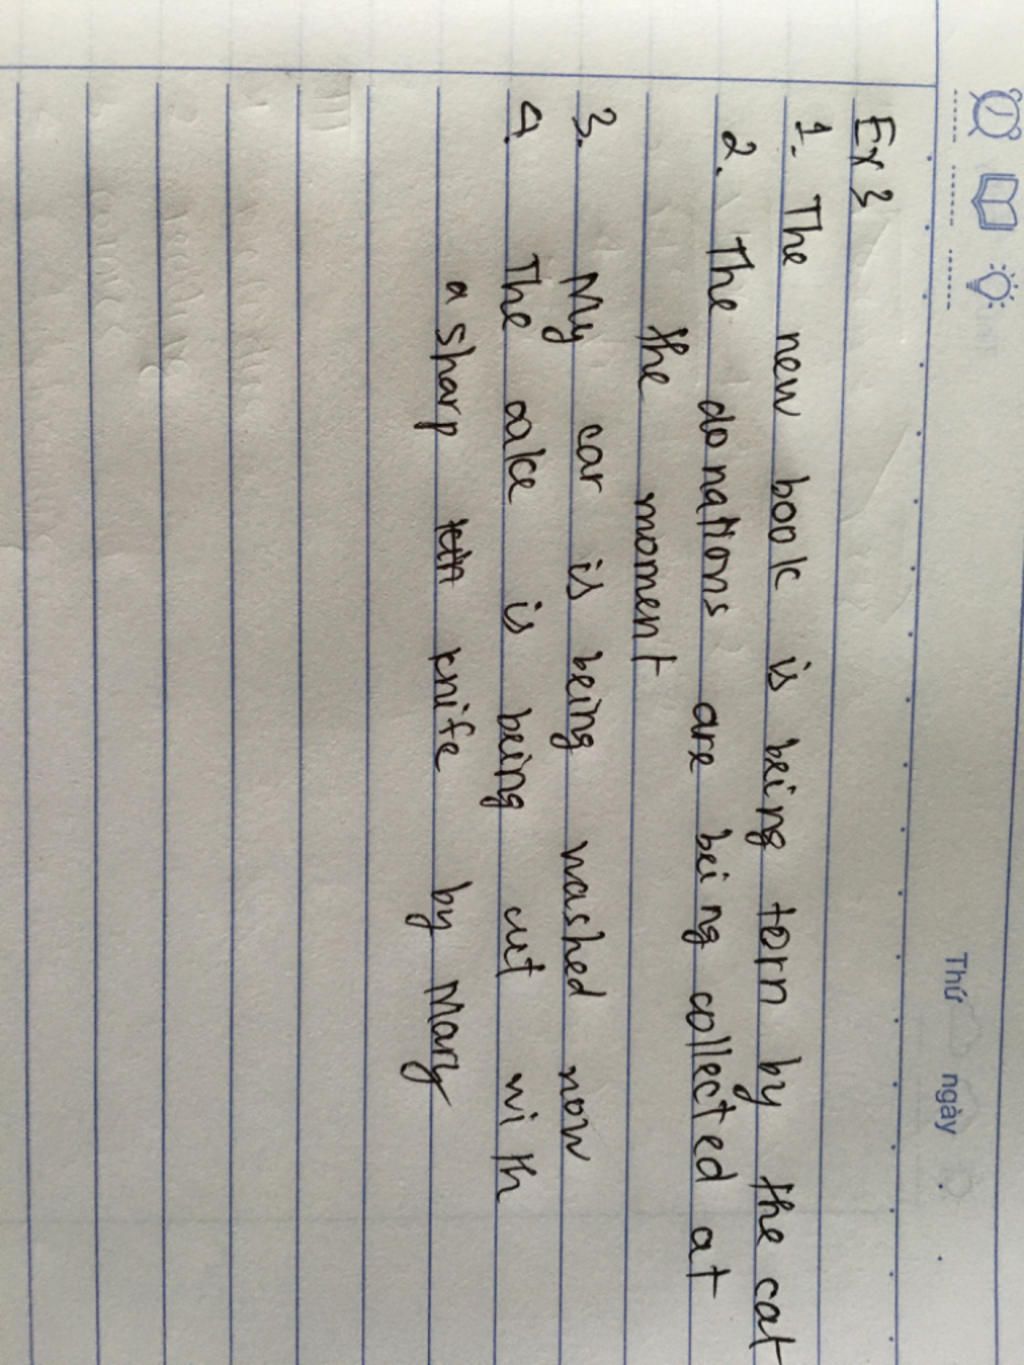 Thứ ngày
Ex 3
1. The new book is being torn by the cat
2. The donations are being collected at
the moment
3. My car is being washed now
4. The cake is being cut with
a sharp knife by Mary